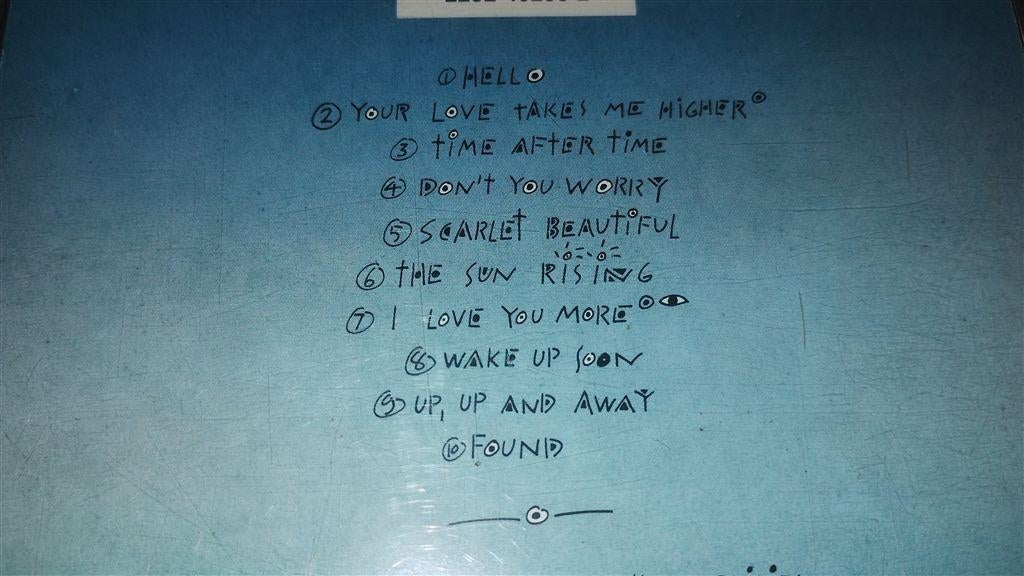 ① HELLO
② YOUR LOVE TAKES ME HIGHER
③ TIME AFTER TIME
④ DON'T YOU WORRY
⑤ SCARLET BEAUTIFUL
⑥ THE SUN RISING
⑦ I LOVE YOU MORE
⑧ WAKE UP SOON
⑨ UP, UP AND AWAY
⑩ FOUND